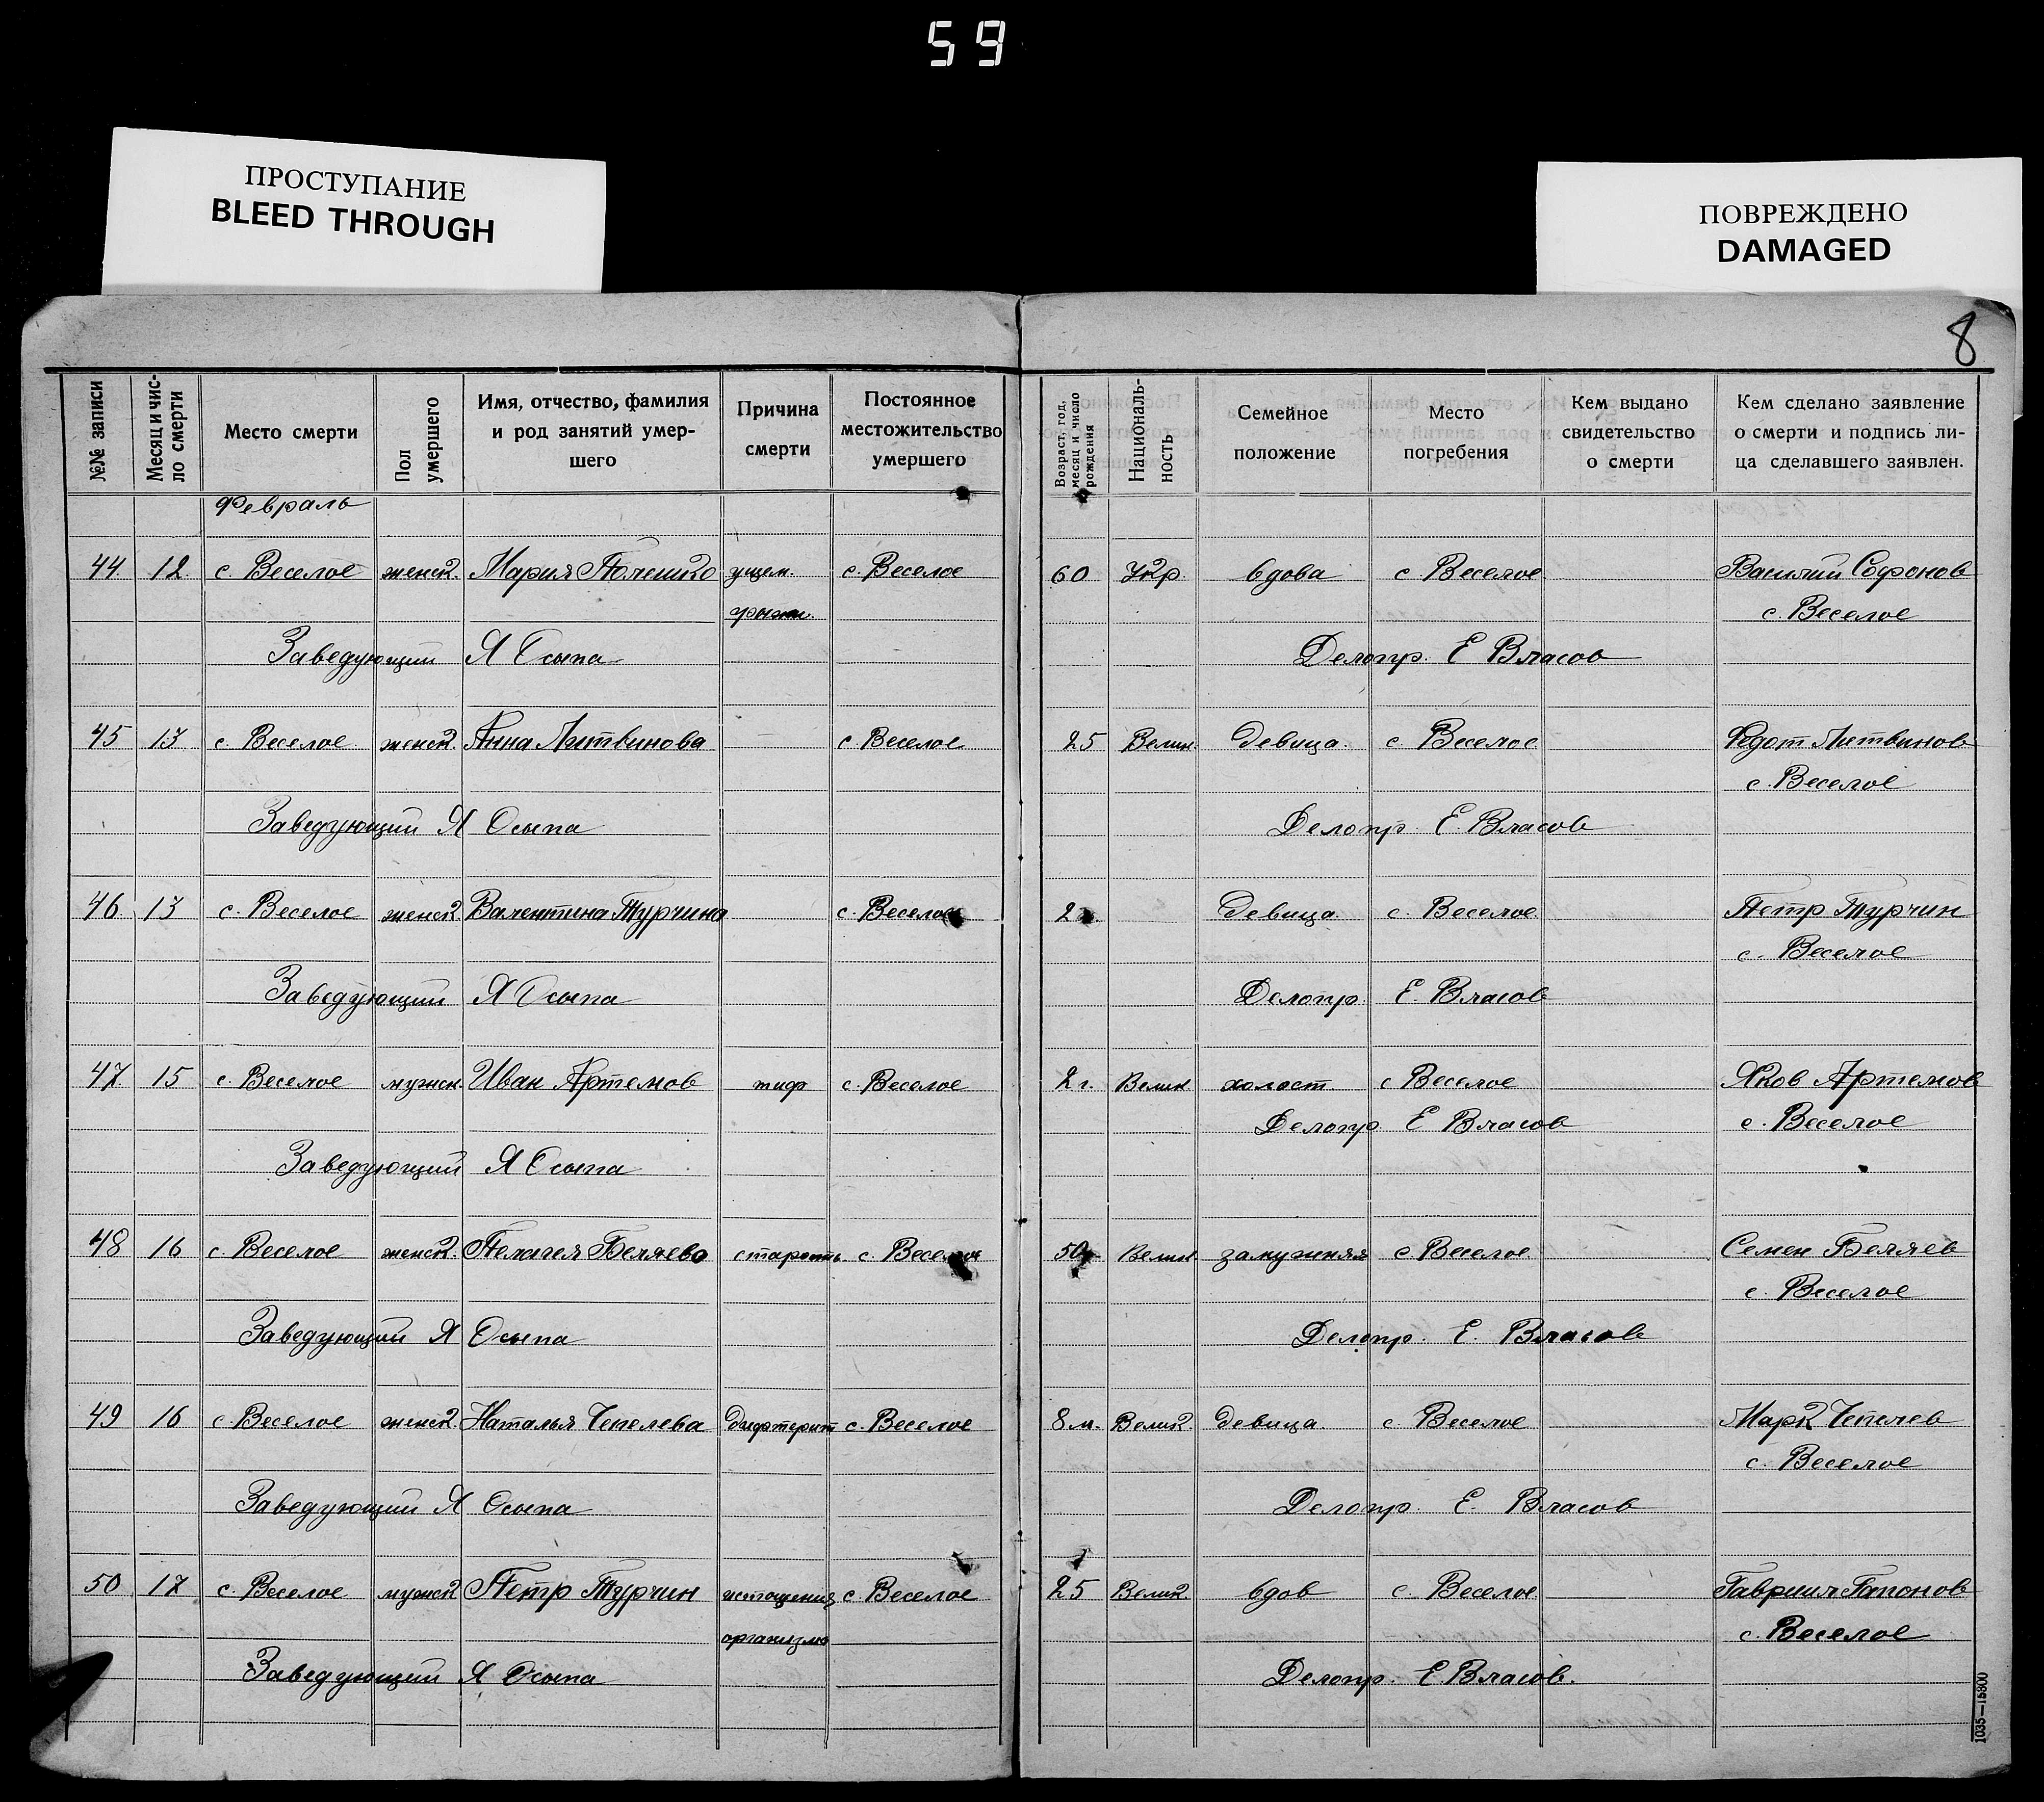 59
ПРОСТУПАНИЕ
BLEED THROUGH
ПОВРЕЖДЕНО
DAMAGED
8
№№ записи
Месяц и число смерти
Место смерти
Пол умершего
Имя, отчество, фамилия
и род занятий умер-
шего
Причина
смерти
Постоянное
местожительство
умершего
Возраст, год,
месяц и число
рождения
Националь-
ность
Семейное
положение
Место
погребения
Кем выдано
свидетельство
о смерти
Кем сделано заявление
о смерти и подпись ли-
ца сделавшего заявлен.
Февраль
44. 12. с. Веселое женск. Мария ущем. с. Веселое 60 Укр. вдова с Веселое Василий Софонов
грыжи. с. Веселое
Заведующий Я Осыпа Делопр. Е Власов
45 13 с. Веселое женск. Анна Литвинова — с Веселое 25 Велик. девица. с. Веселое Федот Литвинов
с. Веселое
Заведующий Я Осыпа Делопр. Е. Власов
46. 13 с. Веселое женск. Валентина Турчина с. Веселое 2 девица с. Веселое Петр Турчин
с. Веселое
Заведующий Я Осыпа Делопр. Е. Власов
47. 15 с. Веселое мужск. Иван Артемов тиф с. Веселое 2 г. Велик холост с Веселое Яков Артемов
Делопр Е Власов с. Веселое
Заведующий Я Осыпа
48 16 с Веселое женск. Пелагея Беляева старость с. Веселое 50 Велик. замужняя с Веселое Семен Беляев
с. Веселое
Заведующий Я Осыпа Делопр. Е. Власов
49 16 с Веселое женск. Наталья Чепелева дифтерит с. Веселое 8 м. Велик. девица с Веселое Марк Чепелев
с. Веселое
Заведующий Я Осыпа Делопр. Е. Власов
50 17 с. Веселое мужск Петр Турчин истощения с. Веселое 25 Велик. вдов с. Веселое Гавриил Гапонов
организма с. Веселое
Заведующий Я Осыпа Делопр. Е. Власов.
1035—15800